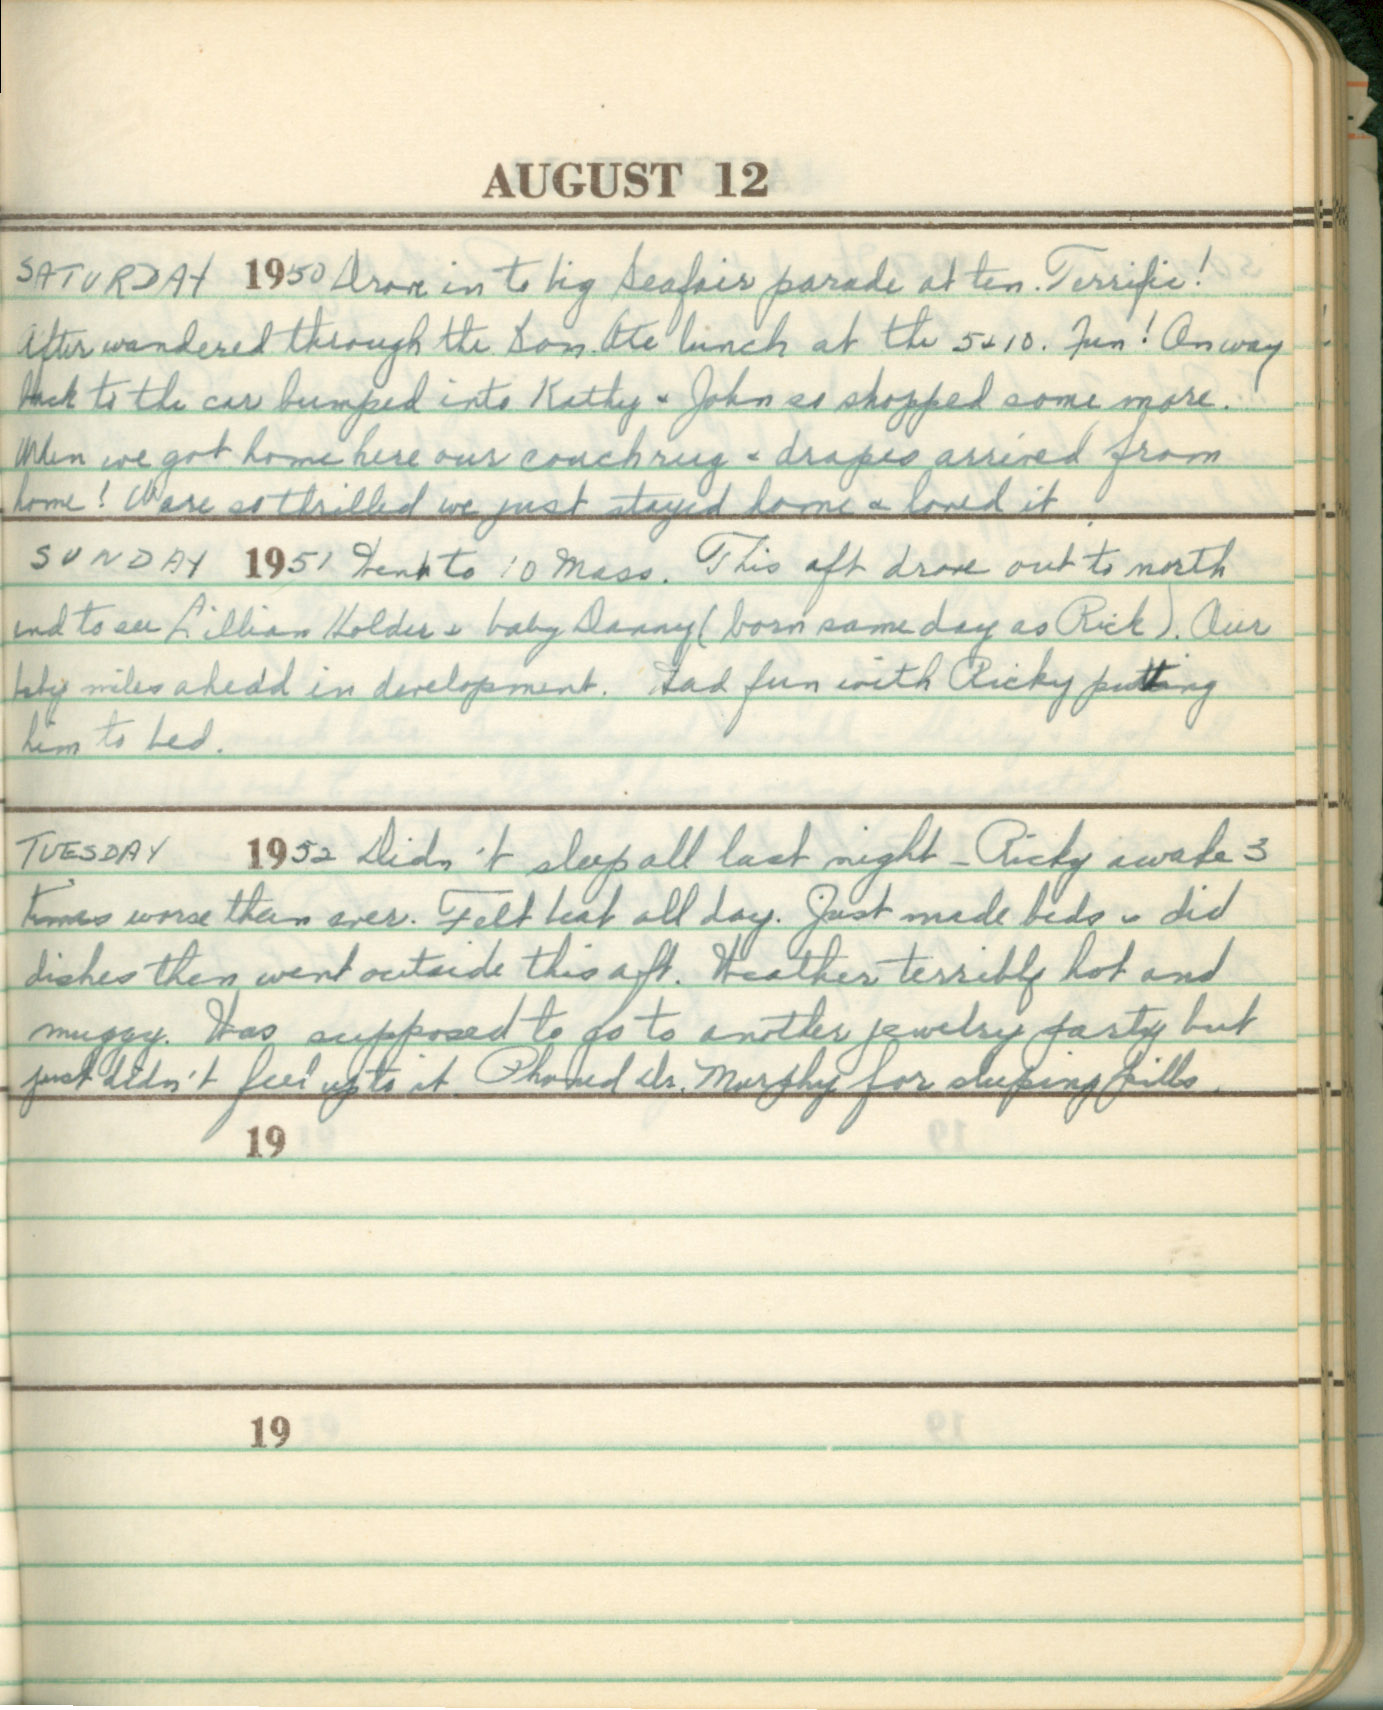 AUGUST 12
SATURDAY 1950 Drove in to big Seafair parade at ten. Terrific!
After wandered through the Bon. Ate lunch at the 5 & 10. Fun! On way
back to the car bumped into Kathy & John so shopped some more.
When we got home here our couch rug & drapes arrived from
home! We are so thrilled we just stayed home & loved it.
SUNDAY 1951 Went to 10 Mass. This aft drove out to north
end to see Lillian Holder & baby Danny (born same day as Rick). Our
baby miles ahead in development. Had fun with Ricky putting
him to bed.
TUESDAY 1952 Didn't sleep all last night - Ricky awake 3
times worse than ever. Felt beat all day. Just made beds & did
dishes then went outside this aft. Weather terribly hot and
muggy. Was supposed to go to another jewelry party but
just didn't feel up to it. Phoned Dr. Murphy for sleeping pills.
19
19